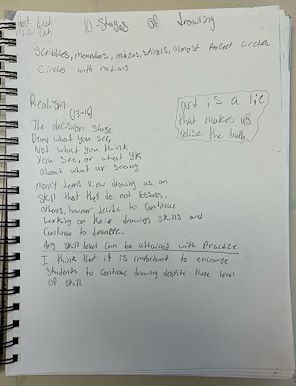 10 stages of drawling
Scribbles, meanders, mazes, spirals, almost perfect circles.
Circles with radials
art is a lie
that makes us
relise the truth
Realism
(13-16)
The decision stage
Draw what you see,
Not what you think
you see, or what
about what ur seeing
many teens view drawing as an
skill that they do not possess.
others, however decide to continue
working on their drawings skills and
continue to
Any skill level can be attained with Practice
I think that it is important to encourge
students to continue drawing despite there level
of skill